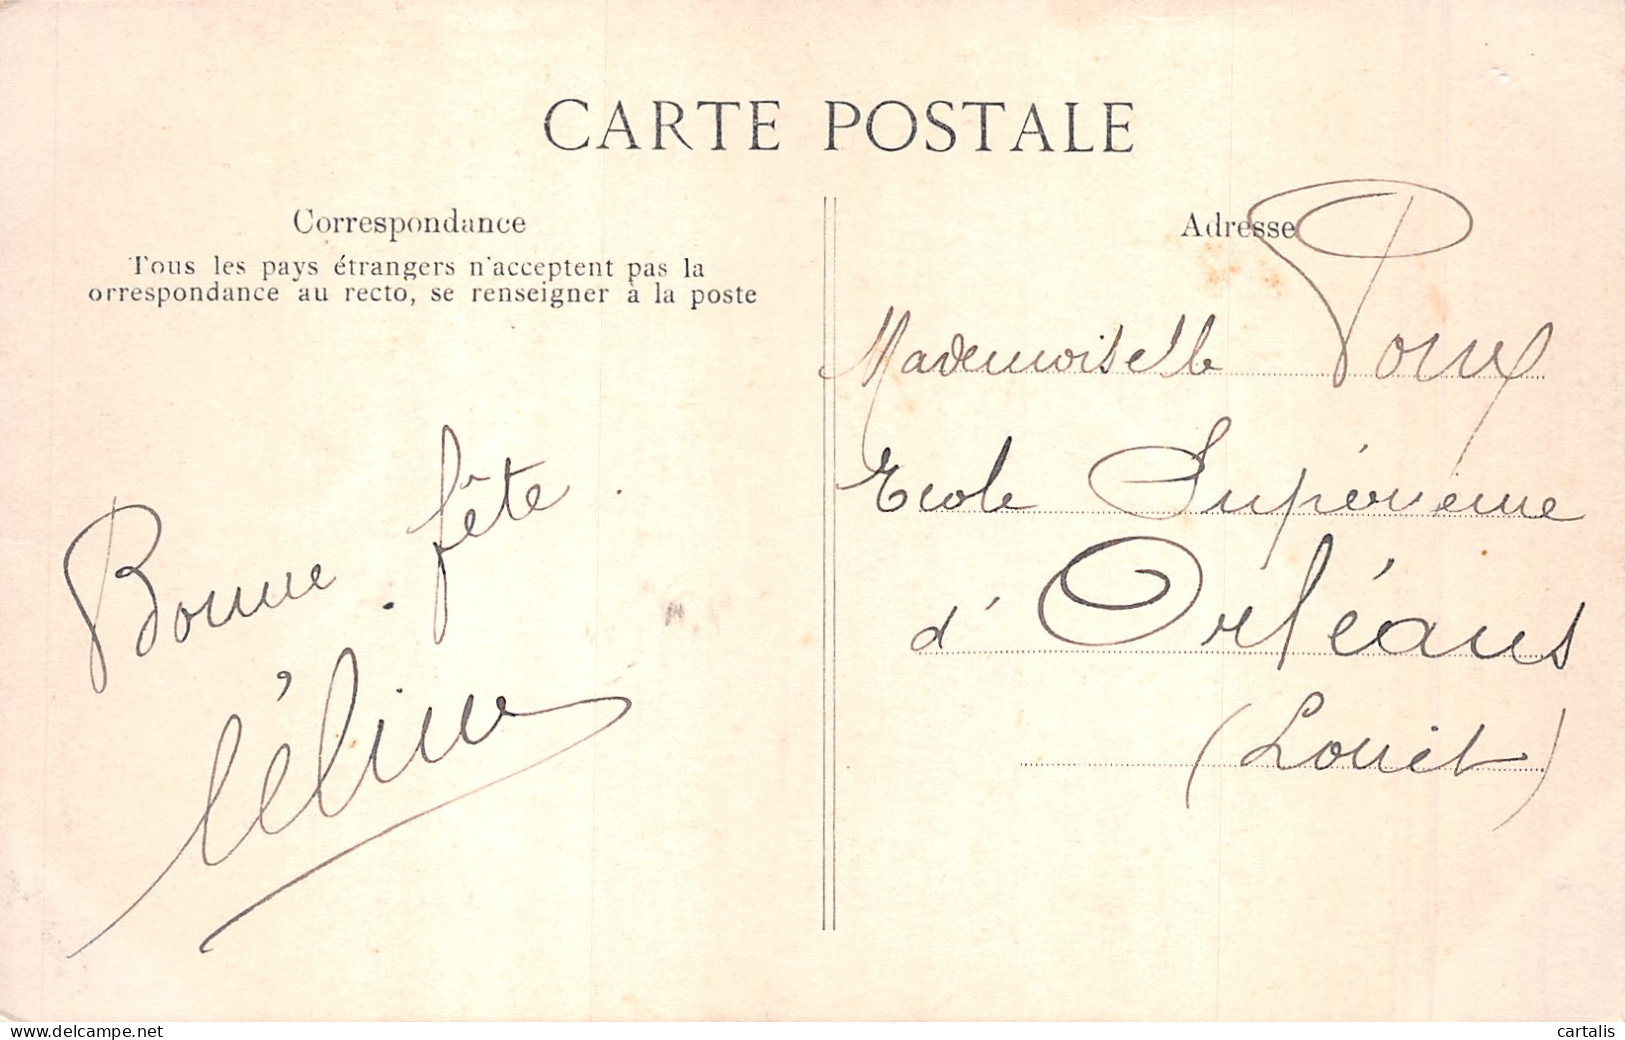 CARTE POSTALE
Correspondance
Tous les pays étrangers n'acceptent pas la
orrespondance au recto, se renseigner à la poste
Bonne fête .
Céline
Adresse
Mademoiselle Poux
Ecole Supérieure
d'Orléans
(Loiret)
delcampe.net
cartalis